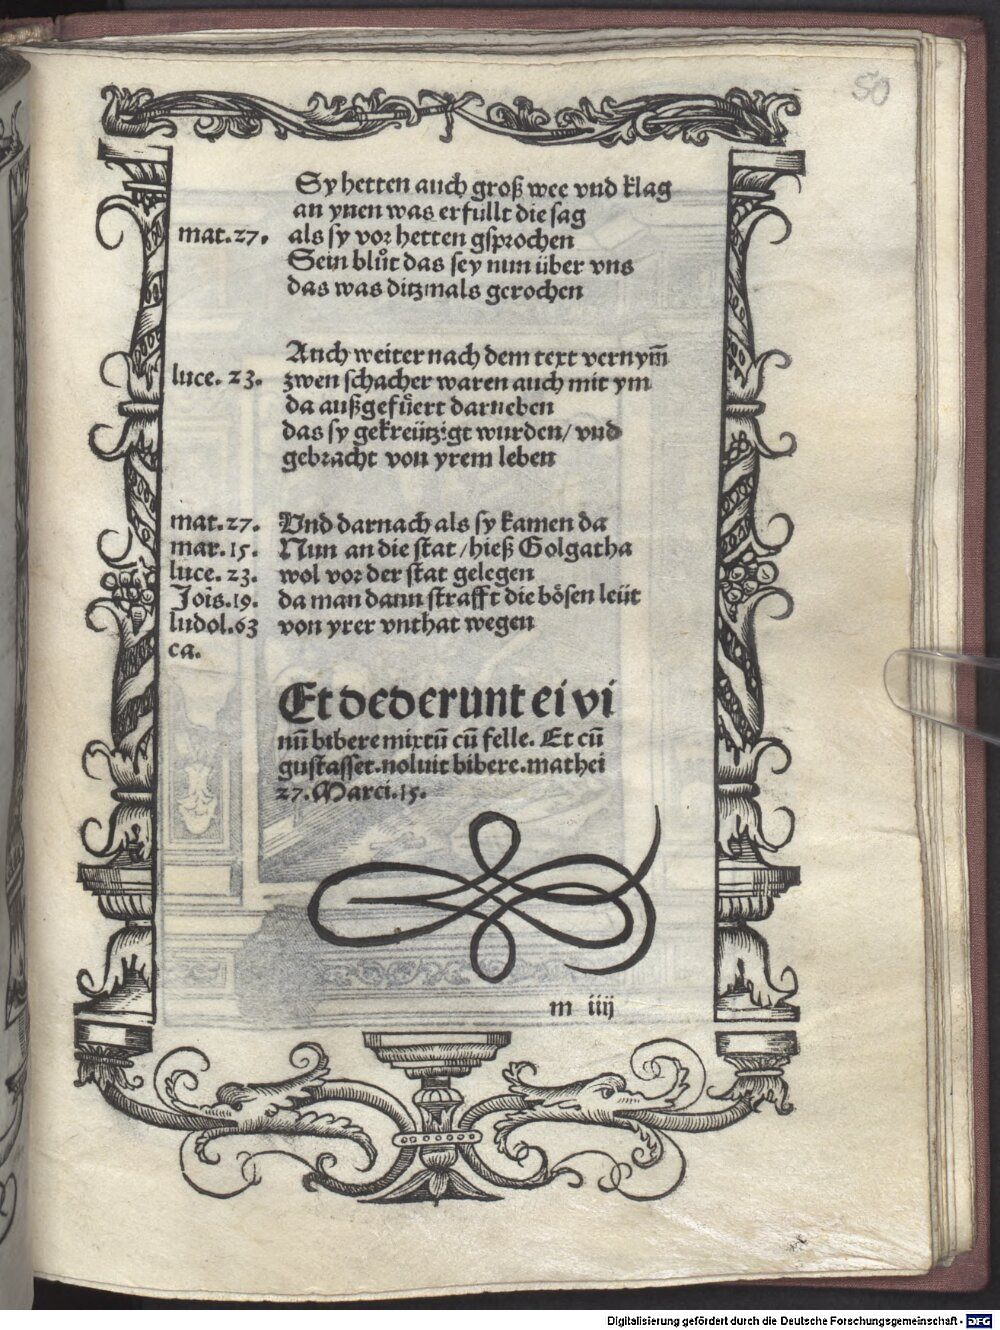 50
Sy hetten auch groß wee vnd klag
an ynen was erfullt die sag
mat.27. als sy vor hetten gsprochen
Sein blůt das sey nun über vns
das was ditzmals gerochen
Auch weiter nach dem text vernym̄
luce. 23. zwen schacher waren auch mit ym
da außgefůert darneben
das sy gekreützigt wurden/ vnd
gebracht von yrem leben
mat.27. Vnd darnach als sy kamen da
mar.15. Nun an die stat/hieß Golgatha
luce. 23. wol vor der stat gelegen
Jois.19. da man dann strafft die bösen leüt
ludol.63 von yrer vnthat wegen
ca.
Et dederunt ei vi
nū bibere mixtū cū felle. Et cū
gustasset.noluit bibere.mathei
27.Marci.15.
m iiij
Digitalisierung gefördert durch die Deutsche Forschungsgemeinschaft - DFG